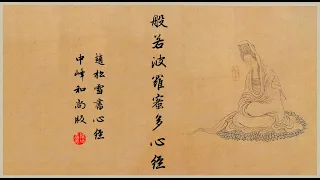 般若波羅蜜多心經
趙松雪書心經
中峰和尚版